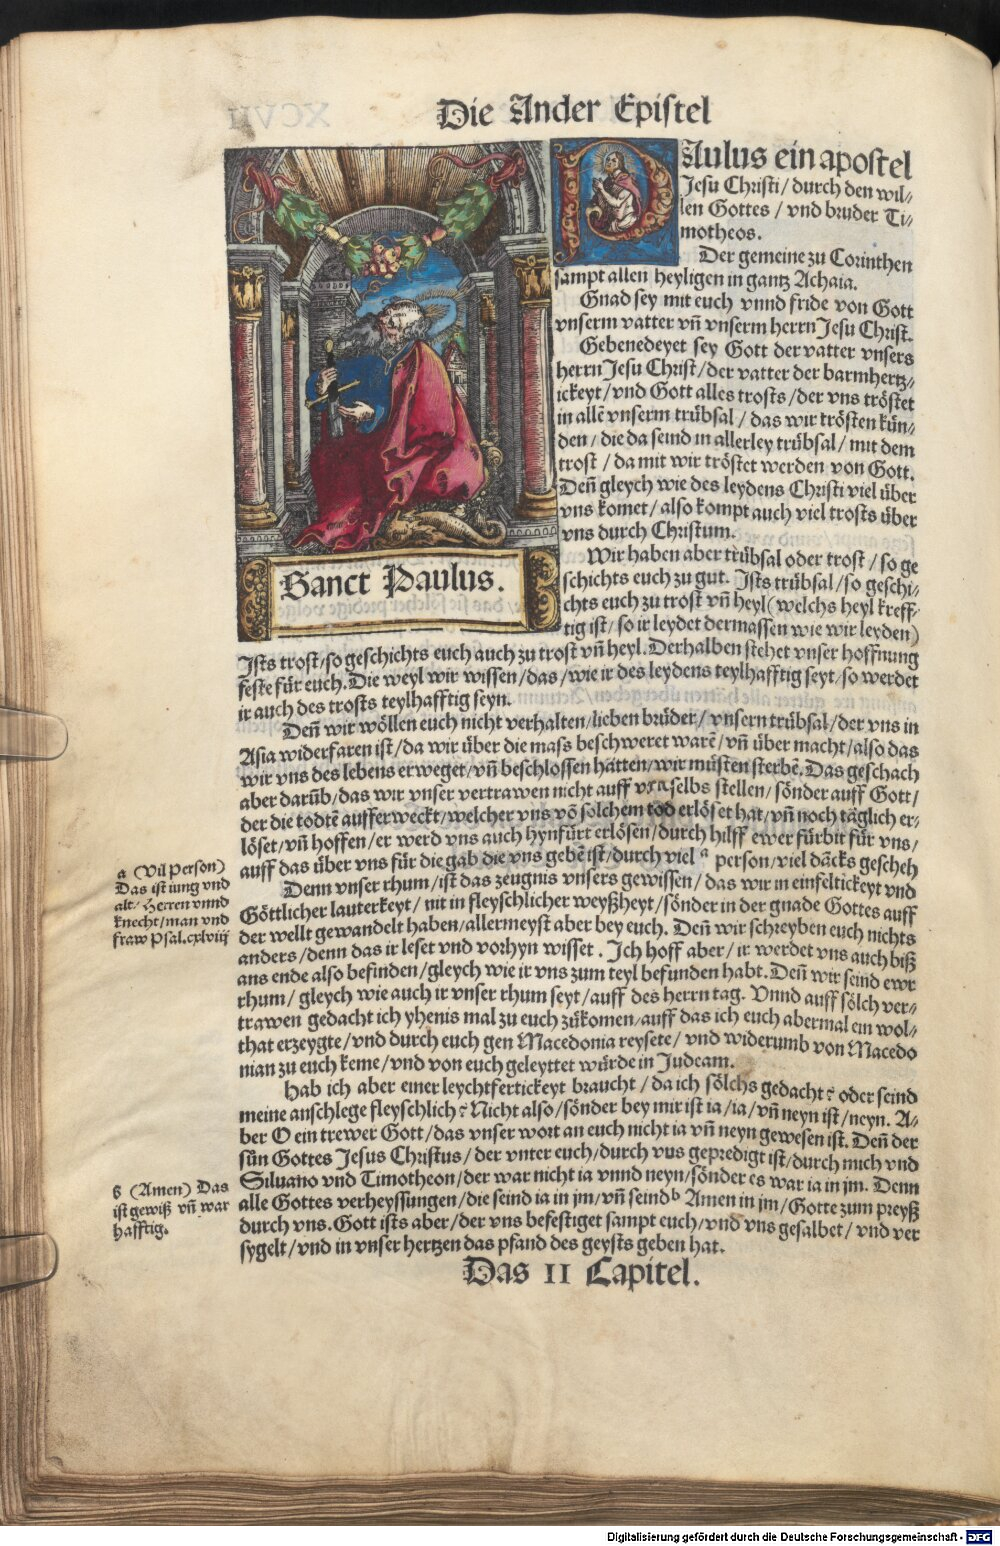 Die Ander Epistel
PAulus ein apostel
Jesu Christi/durch den wil⸗
len Gottes/vnd bruder Ti⸗
motheos.
Der gemeine zu Corinthen
sampt allen heyligen in gantz Achaia.
Gnad sey mit euch vnnd fride von Gott
vnserm vatter vñ vnserm herrn Jesu Christ.
Gebenedeyet sey Gott der vatter vnsers
herrn Jesu Christ/der vatter der barmhertz⸗
ickeyt/vnd Gott alles trosts/der vns tröstet
in allē vnserm trübsal/das wir trösten kün⸗
den/die da seind in allerley trübsal/mit dem
trost/da mit wir tröstet werden von Gott.
Deñ gleych wie des leydens Christi viel über
vns komet/also kompt auch viel trosts über
vns durch Christum.
Wir haben aber trübsal oder trost/so ge
schichts euch zu gut. Ists trübsal/so geschi⸗
chts euch zu trost vñ heyl(welchs heyl kreff⸗
tig ist/so ir leydet dermassen wie wir leyden)
Sanct Paulus.
Ists trost/so geschichts euch auch zu trost vñ heyl. Derhalben stehet vnser hoffnung
feste für euch. Die weyl wir wissen/das/wie ir des leydens teylhafftig seyt/so werdet
ir auch des trosts teylhafftig seyn.
Deñ wir wöllen euch nicht verhalten/lieben brüder/vnsern trübsal/der vns in
Asia widerfaren ist/da wir über die mass beschweret warē/vñ über macht/also das
wir vns des lebens erweget/vñ beschlossen hätten/wir müsten sterbē. Das geschach
aber darūb/das wir vnser vertrawen nicht auff vns selbs stellen/sönder auff Gott/
der die todtē aufferweckt/welcher vns vō solchem tod erlöset hat/vñ noch täglich er⸗
löset/vñ hoffen/er werd vns auch hynfürt erlösen/durch hilff ewer fürbit für vns/
auff das über vns für die gab die vns gebē ist/durch viel a person/viel dācks gescheh
a (Vil Person)
Das ist iung vnd
alt/Herren vnnd
knecht/man vnd
fraw Psal.cxlviij
Denn vnser rhum/ist das zeugnis vnsers gewissen/das wir in einfeltickeyt vnd
Göttlicher lauterkeyt/nit in fleyschlicher weyßheyt/sönder in der gnade Gottes auff
der wellt gewandelt haben/allermeyst aber bey euch. Deñ wir schreyben euch nichts
anders/denn das ir leset vnd vorhyn wisset. Ich hoff aber/ir werdet vns auch biß
ans ende also befinden/gleych wie ir vns zum teyl befunden habt. Deñ wir seind ewr
rhum/gleych wie auch ir vnser rhum seyt/auff des herrn tag. Vnnd auff sölch ver⸗
trawen gedacht ich yhenis mal zu euch zükomen/auff das ich euch abermal ein wol⸗
that erzeygte/vnd durch euch gen Macedonia reysete/vnd widerumb von Macedo
nian zu euch keme/vnd von euch geleyttet würde in Judeam.
Hab ich aber einer leychtfertickeyt braucht/da ich sölchs gedacht? oder seind
meine anschlege fleyschlich? Nicht also/sönder bey mir ist ia/ia/vñ neyn ist/neyn. A⸗
ber O ein trewer Gott/das vnser wort an euch nicht ia vñ neyn gewesen ist. Deñ der
sün Gottes Jesus Christus/der vnter euch/durch vus gepredigt ist/durch mich vnd
Siluano vnd Timotheon/der war nicht ia vnnd neyn/sönder es war ia in jm. Denn
alle Gottes verheyssungen/die seind ia in jm/vñ seind b Amen in jm/Gotte zum preyß
durch vns. Gott ists aber/der vns befestiget sampt euch/vnd vns gesalbet/vnd ver
sygelt/vnd in vnser hertzen das pfand des geysts geben hat.
b (Amen) Das
ist gewiß vñ war
hafftig.
Das II Capitel.
Digitalisierung gefördert durch die Deutsche Forschungsgemeinschaft - DFG